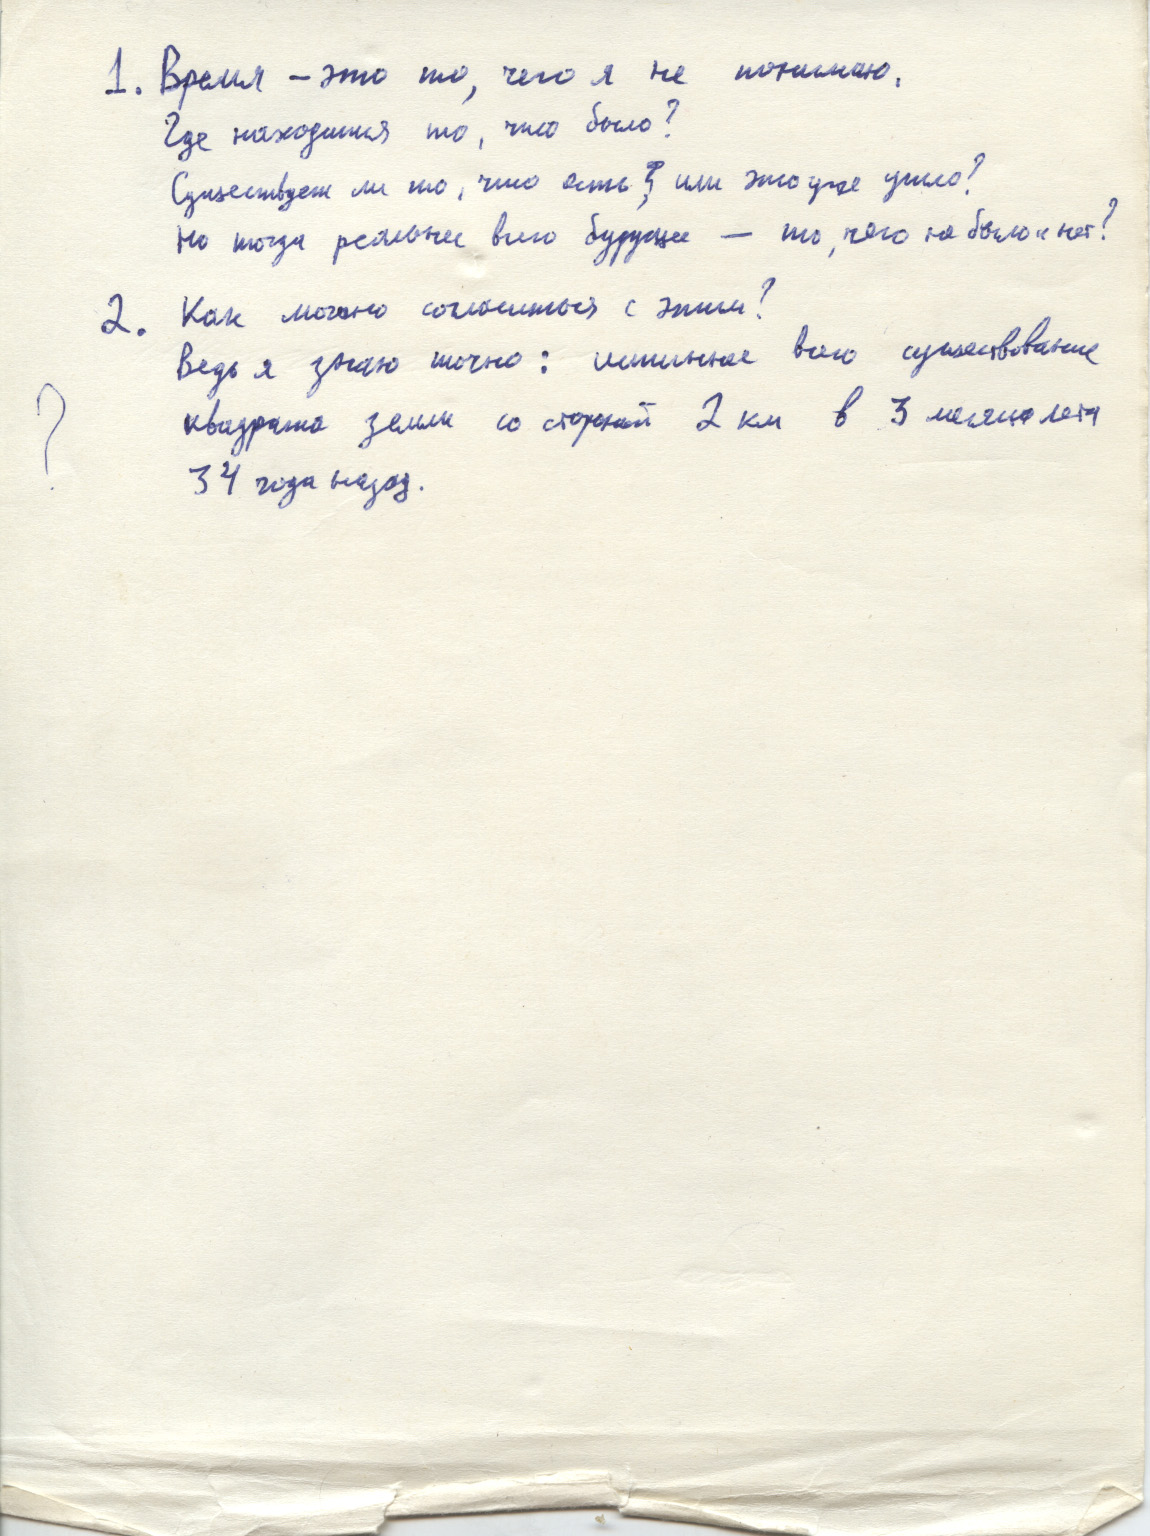 1. Время – это то, чего я не понимаю.
Где находится то, что было?
Существует ли то, что есть, или это уже ушло?
Но тогда реальнее всего будущее — то, чего не было и нет?
2. Как можно согласиться с этим?
Ведь я знаю точно: истиннее всего существование
?
квадрата земли со стороной 2 км в 3 месяца лета
34 года назад.